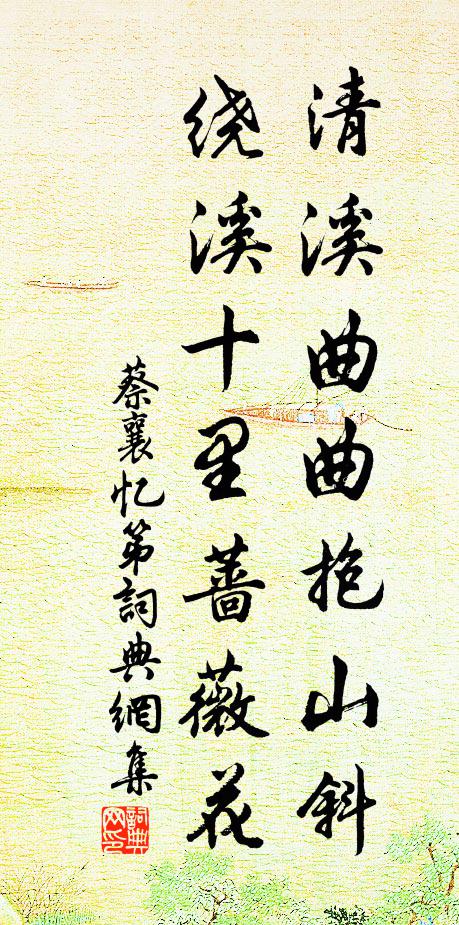 清溪曲曲抱山斜
绕溪十里蔷薇花
蔡襄忆弟詞典網集
詞典网印